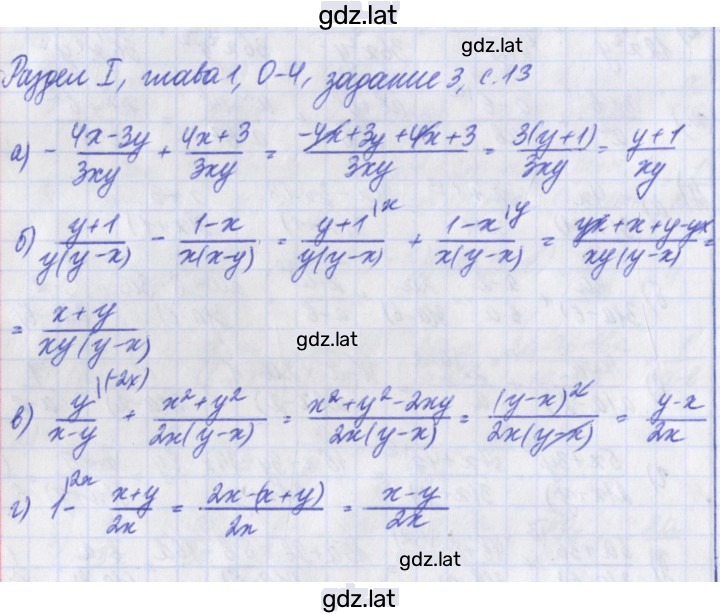 gdz.lat
gdz.lat
Раздел I, глава 1, О-4, задание 3, с. 13
а) - (4x-3y)/(3xy) + (4x+3)/(3xy) = (-4x+3y+4x+3)/(3xy) = 3(y+1)/(3xy) = (y+1)/(xy)
б) (y+1)/(y(y-x)) - (1-x)/(x(x-y)) = (y+1)/(y(y-x)) |x + (1-x)/(x(y-x)) |y = (yx+x+y-yx)/(xy(y-x)) =
= (x+y)/(xy(y-x))
gdz.lat
в) y/(x-y) |(-2x) + (x²+y²)/(2x(y-x)) = (x²+y²-2xy)/(2x(y-x)) = (y-x)²/(2x(y-x)) = (y-x)/(2x)
г) 1 |2x - (x+y)/(2x) = (2x-(x+y))/(2x) = (x-y)/(2x)
gdz.lat
gdz.lat